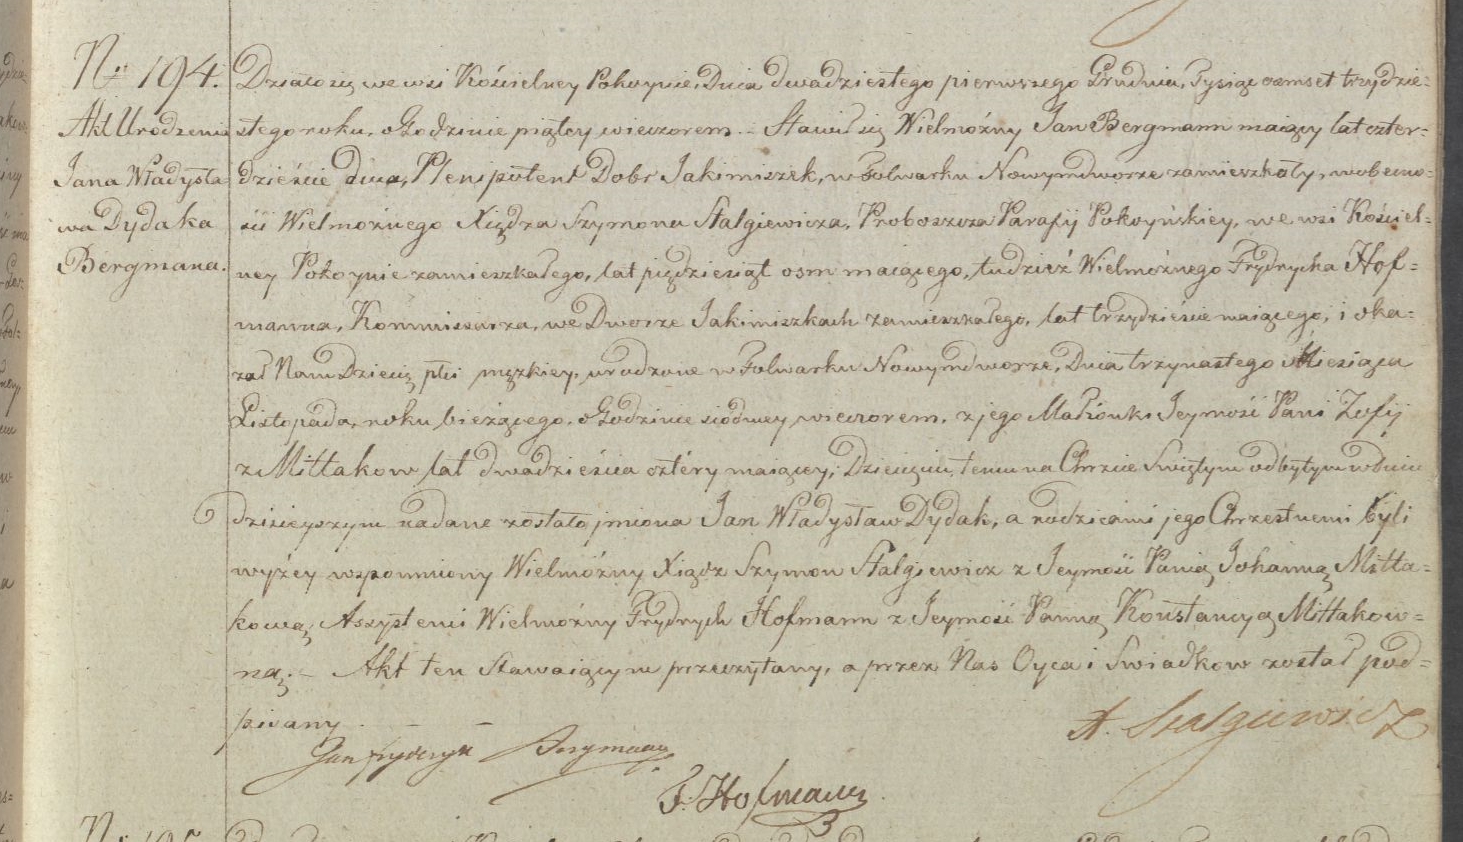 No 194.
Akt Urodzenia
Jana Władysła
wa Dydaka
Bergmana.
Działo się we wsi Kościelney Pokoynie, Dnia dwudziestego pierwszego Grudnia, Tysiąc osmset trzydzie-
stego roku, o Godzinie piątey wieczorem. – Stawił się Wielmożny Jan Bergmann maiący lat czter-
dzieście dwa, Plenipotent Dobr Jakimiszek, w Folwarku Nowymdworze zamieszkały, w obecno-
ści Wielmożnego Xiędza Szymona Stalgiewicza, Proboszcza Parafij Pokoyńskiey, we wsi Kościel-
ney Pokoynie zamieszkałego, lat pięćdziesiąt osm maiącego, tudzież Wielmożnego Frydrycha Hof-
manna, Kommissarza, we Dworze Jakimiszkach zamieszkałego, lat trzydzieście maiącego, i oka-
zał Nam Dziecię płci męzkiey, urodzone w Folwarku Nowymdworze, Dnia trzynastego Miesiąca
Listopada, roku bieżącego, o Godzinie siódmey wieczorem, z jego Małżonki Jeymość Pani Zofij
z Mittakow lat dwadzieścia cztéry maiącey; Dziecięciu temu na Chrzcie Swiętym odbytym w dniu
dzisieyszym nadane zostało jmiona Jan Władysław Dydak, a rodzicami jego Chrzestnemi byli
wyżey wspomniony Wielmożny Xiądz Szymon Stalgiewicz z Jeymość Panią Johanną Mitta-
kową; Assystenci Wielmożny Frydrych Hofmann z Jeymość Panną Konstancyą Mittakow-
ną. – Akt ten Stawaiącym przeczytany, a przez Nas Oyca i Swiadkow został pod-
pisany. – –
X. Stalgiewicz
Jan Fryderyk Bergmann
F. Hofmann